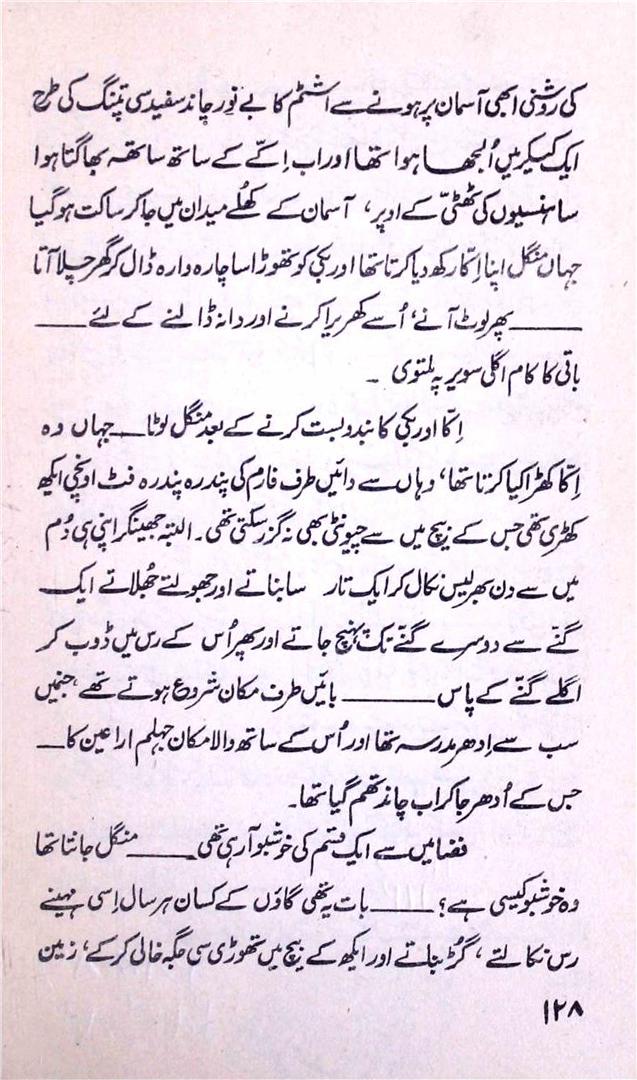 کی روشنی ابھی آسمان پر ہونے سے اشٹم کا بے نور چاند سفید سی پتنگ کی طرح
ایک کیکر میں اُلجھا ہوا تھا اور اب اِکّے کے ساتھ ساتھ بھاگتا ہوا
ساہنسیوں کی ٹھٹّی کے اوپر، آسمان کے کھُلے میدان میں جا کر ساکت ہوگیا
جہاں منگل اپنا اِکّا رکھ دیا کرتا تھا اور بکی کو تھوڑا سا چارہ وارہ ڈال کر گھر چلا آتا
ـــــــ پھر لوٹ آنے، اُسے کھریرا کرنے اور دانہ ڈالنے کے لئے ـــــــ
باقی کا کام اگلی سویر پہ ملتوی ۔
اِکّا اور بکی کا بندوبست کرنے کے بعد منگل لوٹا ـــــ جہاں وہ
اِکّا کھڑا کیا کرتا تھا، وہاں سے دائیں طرف فارم کی پندرہ پندرہ فٹ اونچی ایکھ
کھڑی تھی جس کے بیچ میں سے چیونٹی بھی نہ گزر سکتی تھی۔ البتہ جھینگر اپنی ہی دُم
میں سے دن بھر لیس نکال کر ایک تار سا بناتے اور جھولتے جھُلاتے ایک
گنّے سے دوسرے گنّے تک پہنچ جاتے اور پھر اُس کے رس میں ڈوب کر
اگلے گنّے کے پاس ـــــــ بائیں طرف مکان شروع ہوتے تھے، جنہیں
سب سے اِدھر مدرسہ تھا اور اُس کے ساتھ والا مکان جہلم اراعین کا ـــــ
جس کے اُدھر جا کر اب چاند تھم گیا تھا۔
فضا میں سے ایک قسم کی خوشبو آ رہی تھی ـــــــ منگل جانتا تھا
وہ خوشبو کیسی ہے؟ ـــــــ بات یہ تھی گاؤں کے کسان ہر سال اِسی مہینے
رس نکالتے، گُڑ بناتے اور ایکھ کے بیچ میں تھوڑی سی جگہ خالی کر کے، زمین
۱۲۸